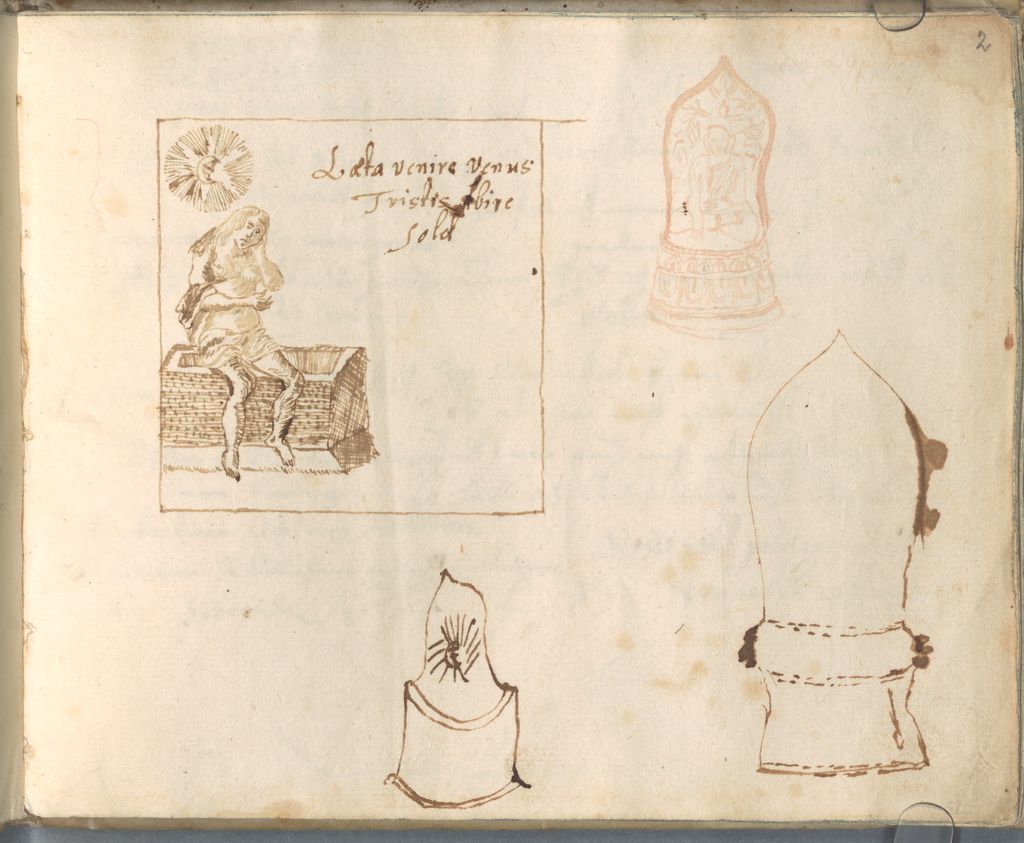 2
Læta venire Venus
Tristis abire
solet